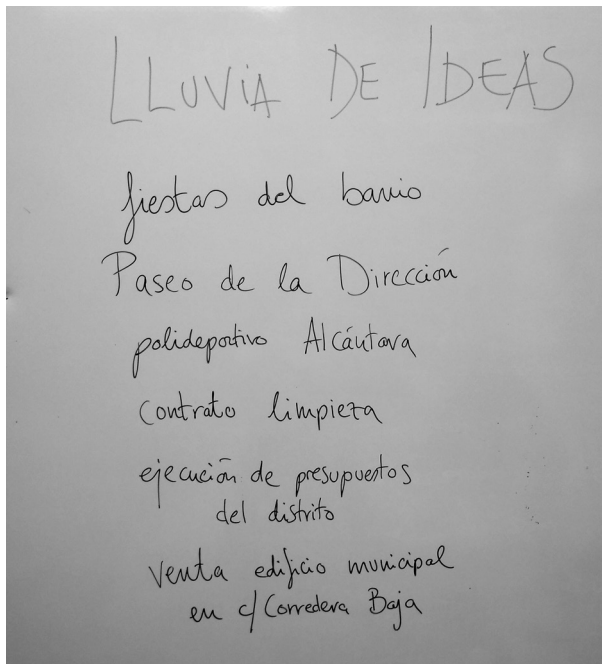 LLUVIA DE IDEAS
fiestas del barrio
Paseo de la Dirección
polideportivo Alcántara
contrato limpieza
ejecución de presupuestos
del distrito
venta edificio municipal
en c/ Corredera Baja